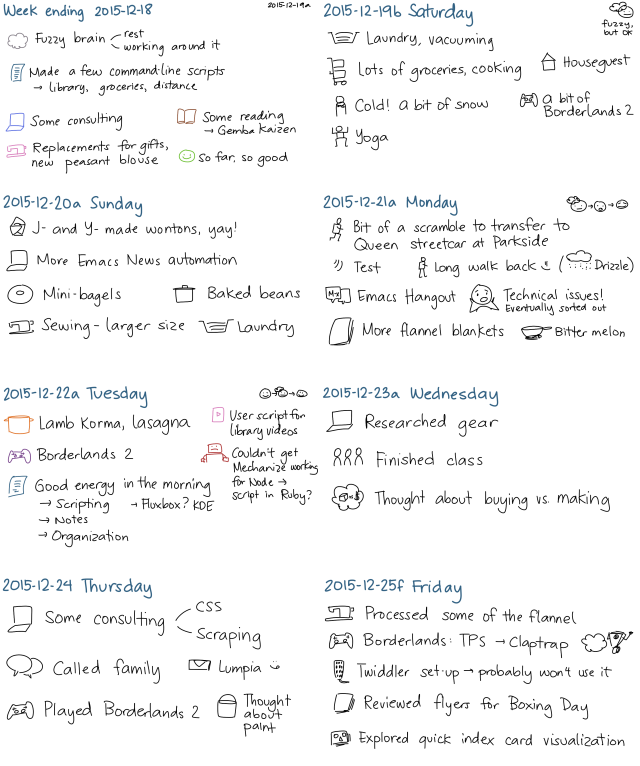 Week ending 2015-12-18
2015-12-19a
Fuzzy brain
rest
working around it
Made a few command-line scripts
→ library, groceries, distance
Some consulting
Some reading
→ Gemba Kaizen
Replacements for gifts,
new peasant blouse
So far, so good
2015-12-19b Saturday
fuzzy,
but OK
Laundry, vacuuming
Lots of groceries, cooking
Houseguest
Cold! a bit of snow
a bit of
Borderlands 2
Yoga
2015-12-20a Sunday
J- and Y- made wontons, yay!
More Emacs News automation
Mini-bagels
Baked beans
Sewing - larger size
Laundry
2015-12-21a Monday
Bit of a scramble to transfer to
Queen streetcar at Parkside
Test
Long walk back
(Drizzle)
M-x
Emacs Hangout
Technical issues!
Eventually sorted out
More flannel blankets
Bitter melon
2015-12-22a Tuesday
Lamb Korma, lasagna
User script for
library videos
Borderlands 2
Couldn't get
Mechanize working
for Node →
script in Ruby?
Good energy in the morning
→ Scripting
→ Fluxbox? KDE
→ Notes
→ Organization
2015-12-23a Wednesday
Researched gear
Finished class
Thought about buying vs. making
2015-12-24 Thursday
Some consulting
CSS
Scraping
Called family
Lumpia
Played Borderlands 2
Thought
about
paint
2015-12-25f Friday
Processed some of the flannel
Borderlands: TPS → Claptrap
Twiddler set-up → probably won't use it
Reviewed flyers for Boxing Day
Explored quick index card visualization